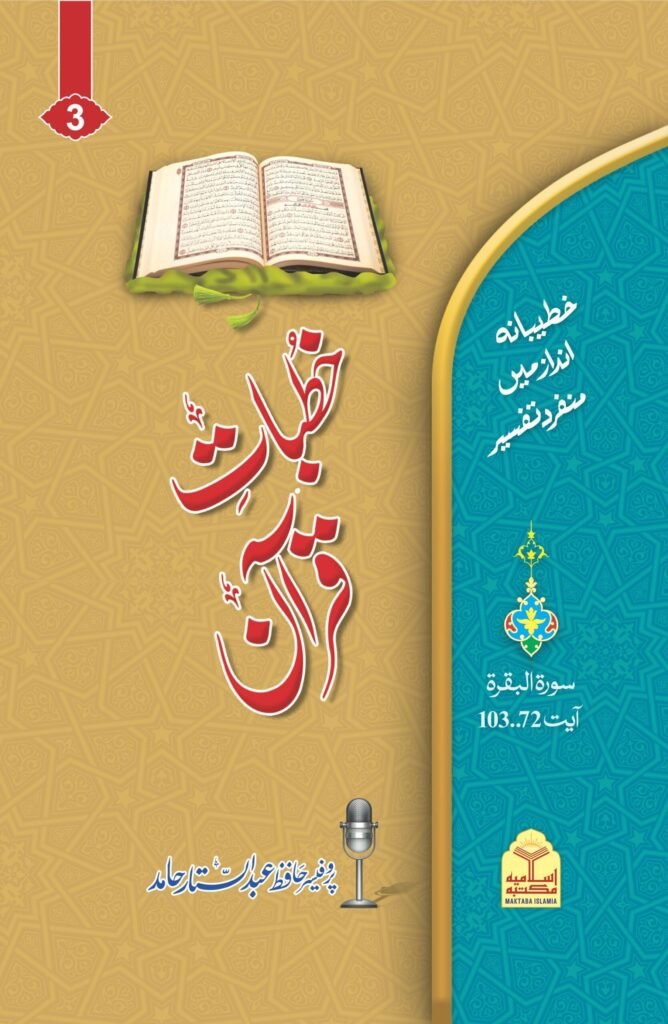 3
خطیبانہ
انداز میں
منفرد تفسیر
خُطباتِ
قرآن
سورة البقرة
آیت 72..103
پروفیسر حافظ عبدالستار حامد
اسلامیہ
مکتبہ
MAKTABA ISLAMIA